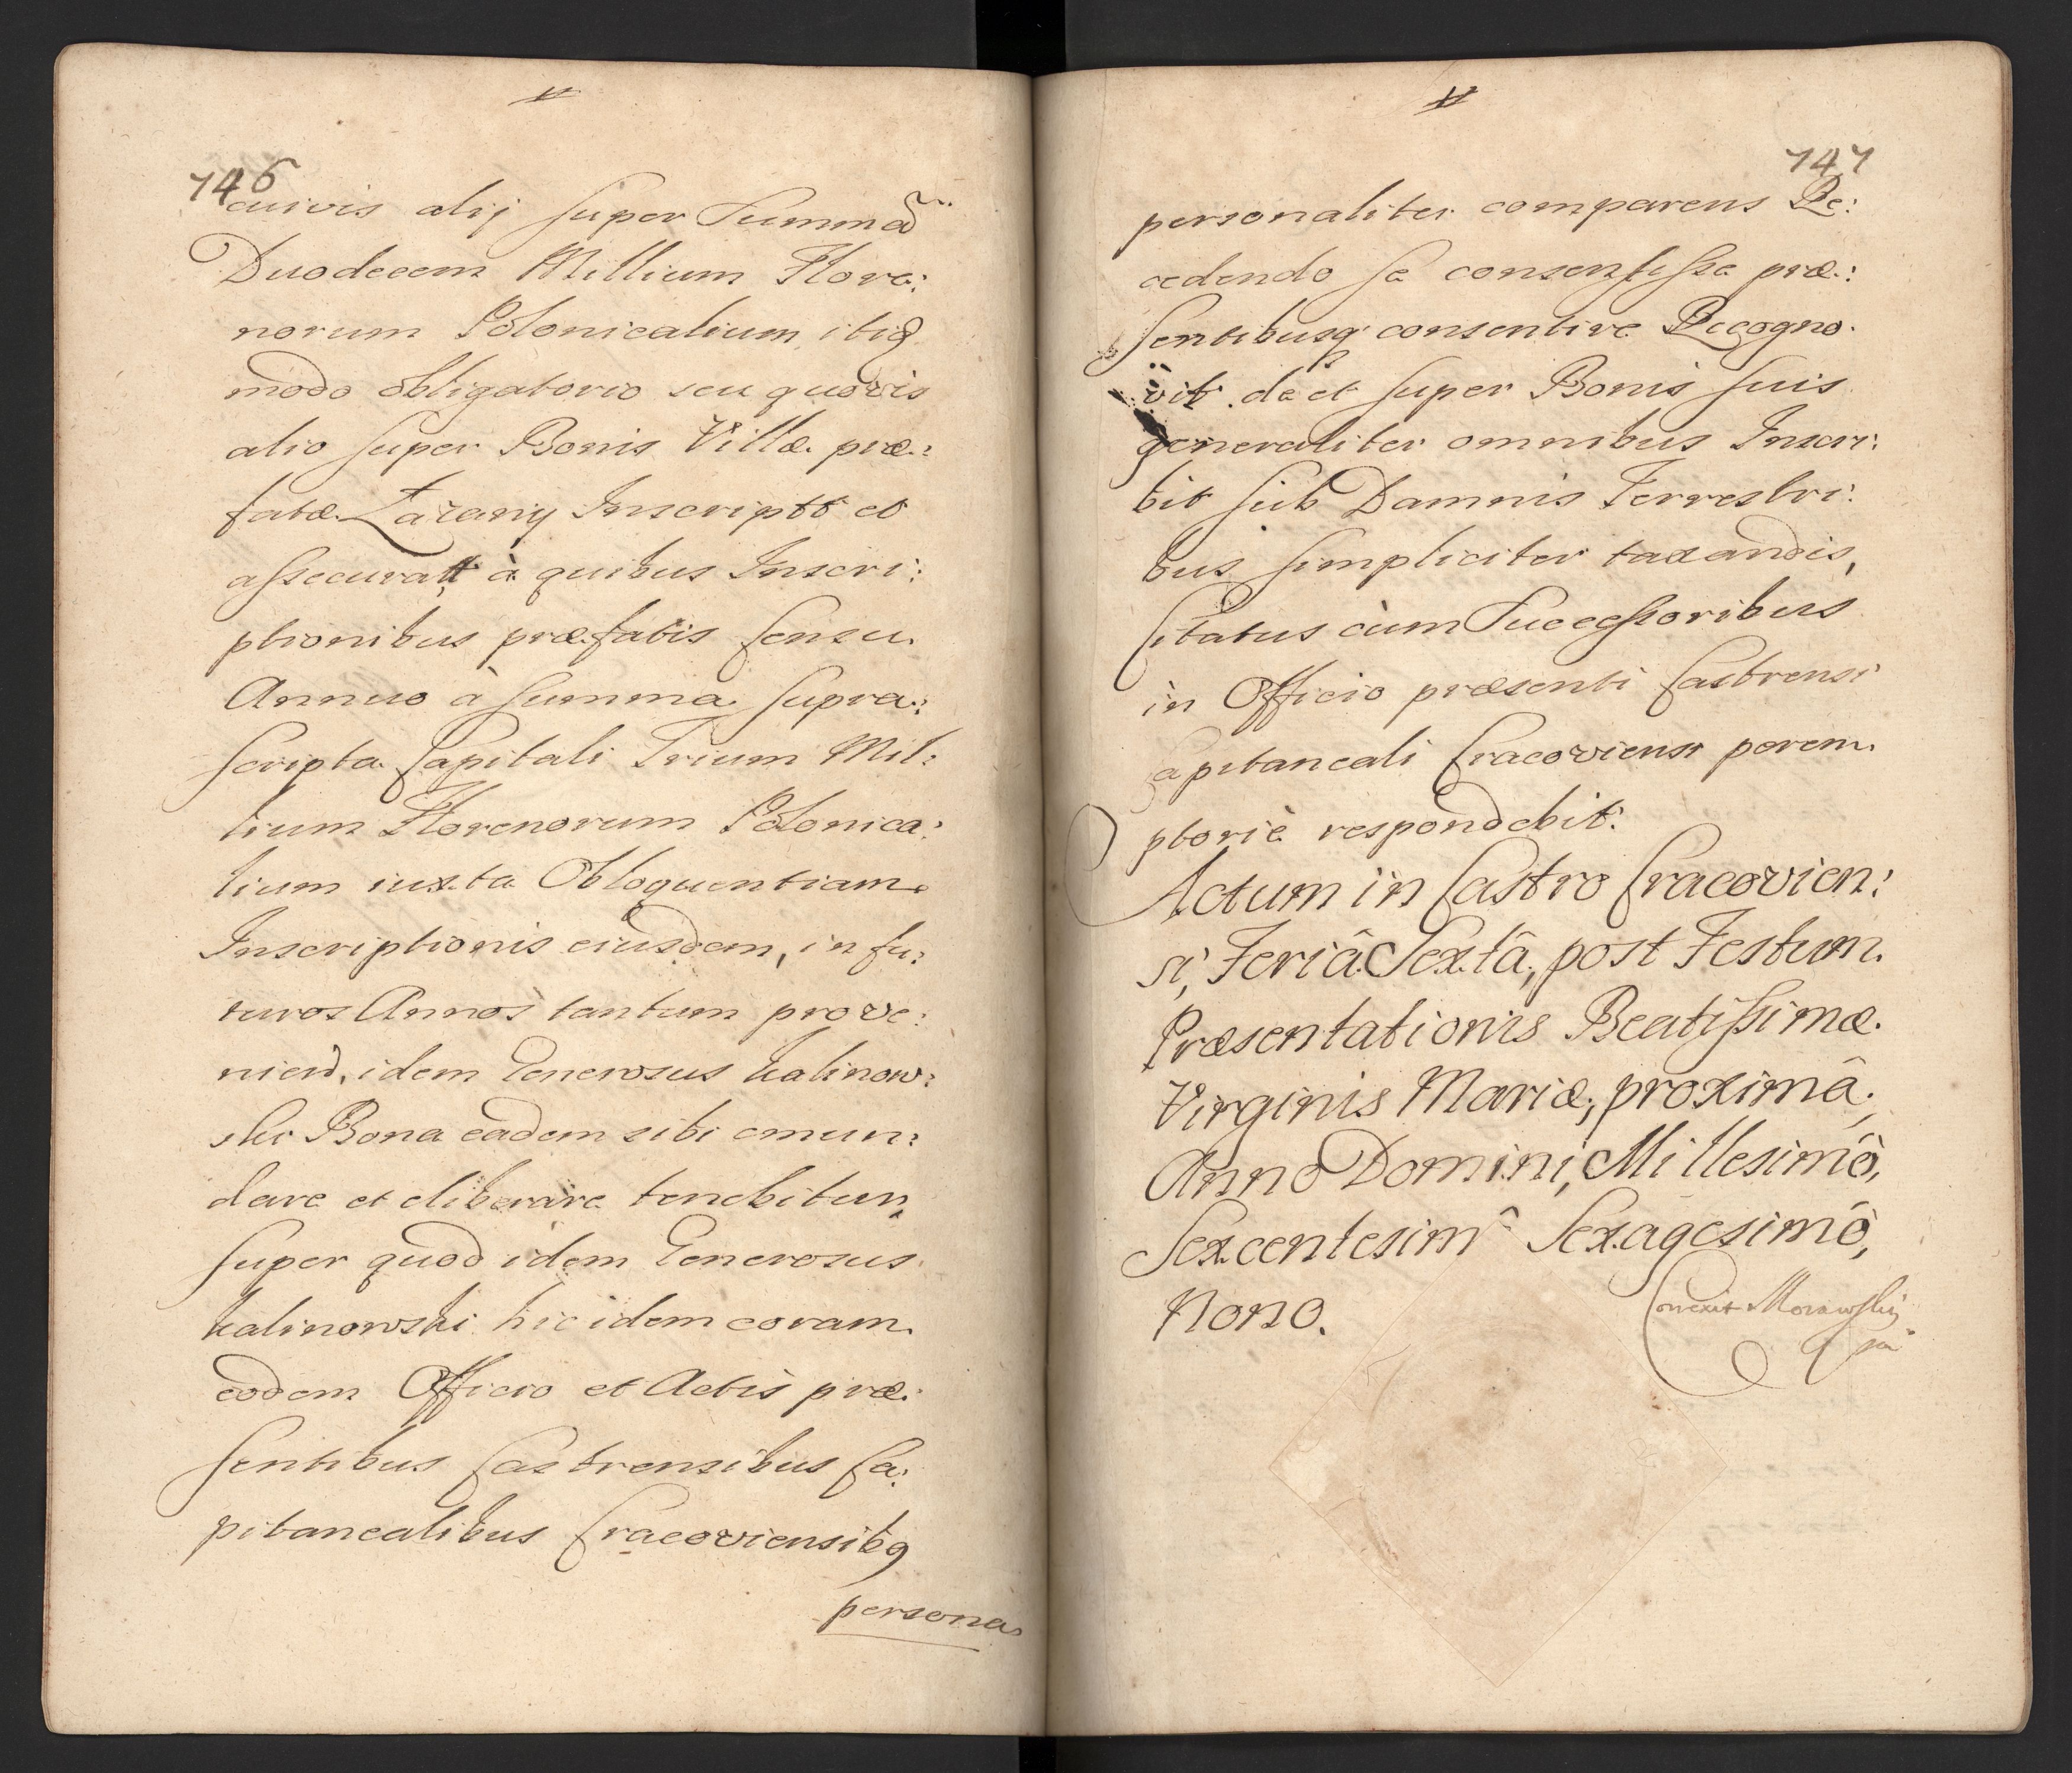 746
cuivis alij super Summa
Duodecem Millium Flore:
norum Polonicalium, itiq
modo obligatorio seu quovis
alio super Bonis Villæ præ:
fatæ Łazany Inscriptt et
assecuratt à quibus Inscri:
ptionibus præfatis Censu
Annuo à summa supra:
scripta Capitali Trium Mil:
lium Florenorum Polonica:
lium iuxta Obloquentiam
Inscriptionis eiusdem, in fu:
turos Annos tantum prove:
niend, idem Generosus Kalinow:
ski Bona eadem sibi emun:
dare et eliberare tenebitur,
super quod idem Generosus
Kalinowski hic idem coram
eodem Officio et Actis præ:
sentibus Castrensibus Ca:
pitanealibus Cracoviensibq
persona
747
personaliter comparens Re:
cedendo se consensisse præ:
sentibusq consentire Recogno
vit de et super Bonis suis
generaliter omnibus Inscri:
bit sub Damnis Terrestri:
bus simpliciter taxandis,
Citatus cùm Successoribus
in Officio præsenti Castrensi
Capitaneali Cracoviensi perem
ptoriè respondebit.
Actum in Castro Cracovien:
si, Feriâ Sextâ, post Festum
Præsentationis Beatissimæ
Virginis Mariæ, proximâ,
Anno Domini, Millesimô,
Sexcentesimô Sexagesimô,
Nono.
Correxit Morawski